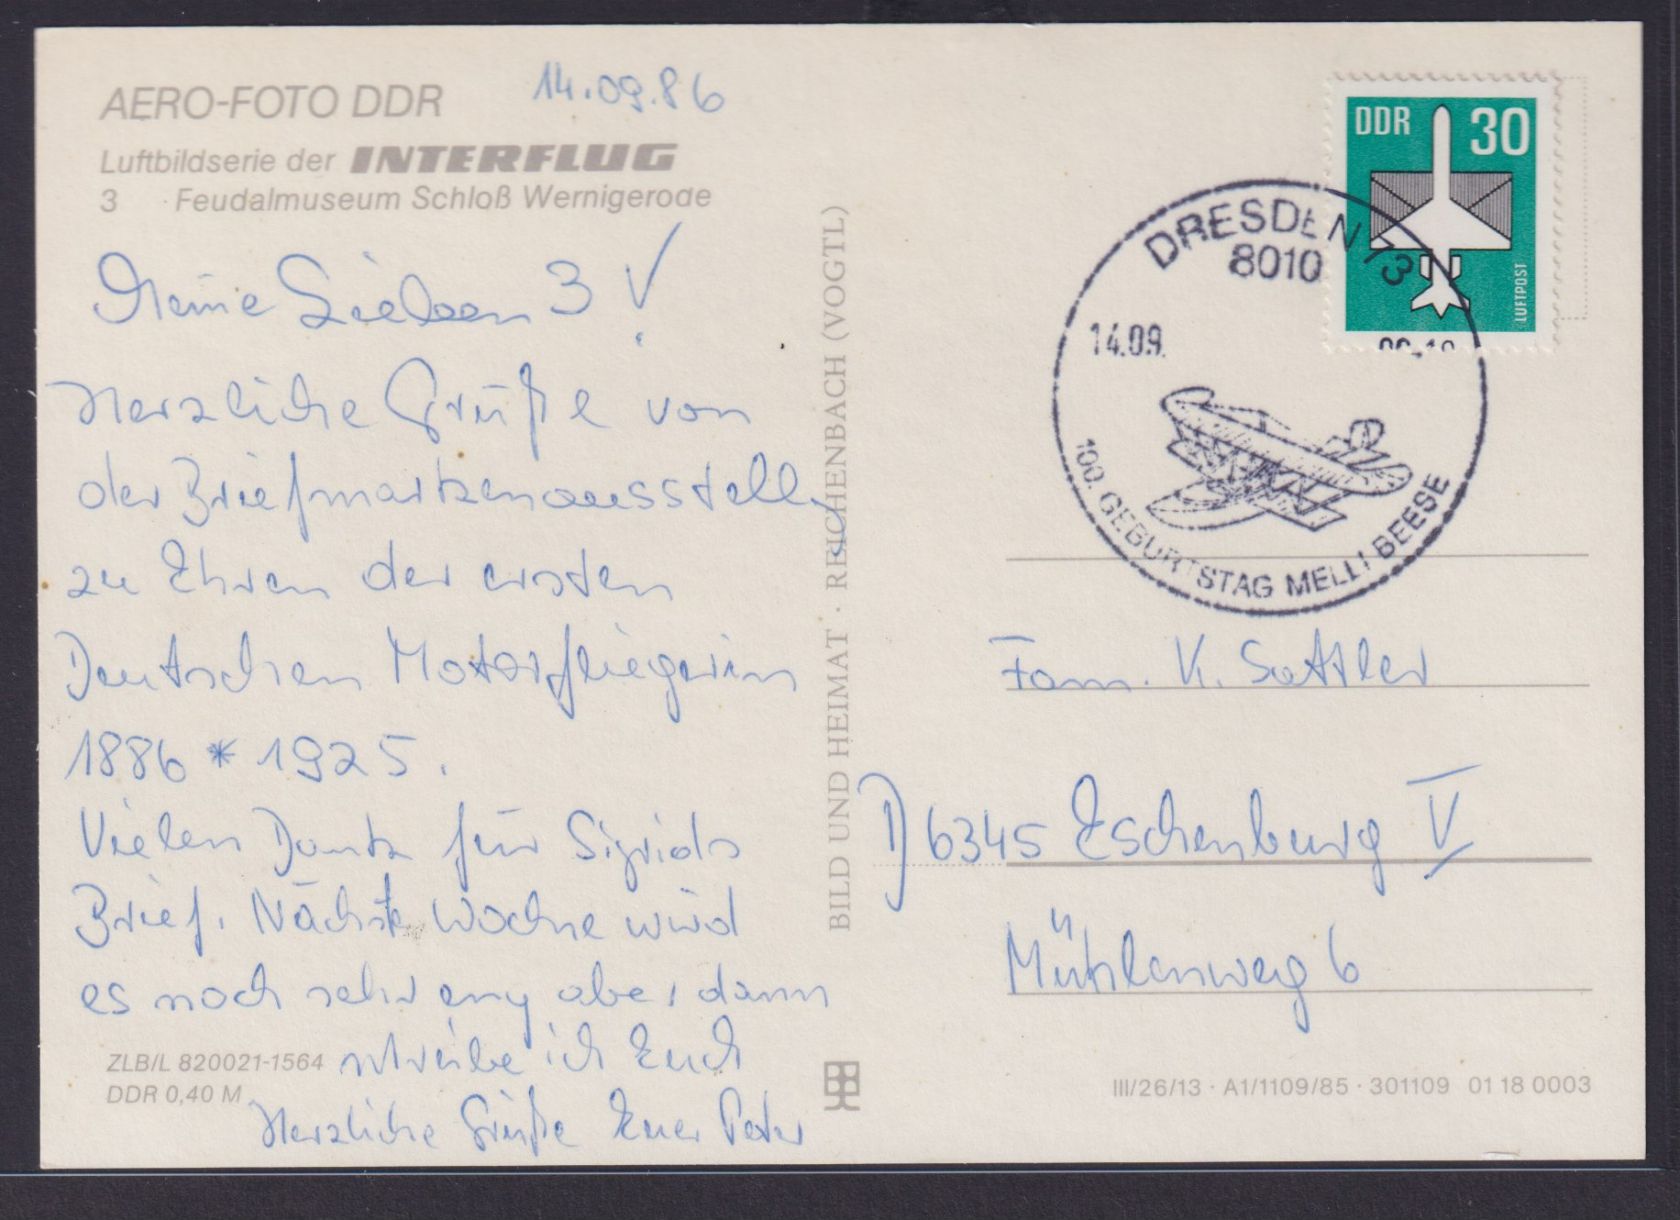 AERO-FOTO DDR
14.09.86
Luftbildserie der INTERFLUG
3 Feudalmuseum Schloß Wernigerode
Meine Lieben 3!
Herzliche Grüße von
der Briefmarkenausstellg
zu Ehren der ersten
Deutschen Motorfliegerin
1886 * 1925.
Vielen Dank für Sigrids
Brief. Nächste Woche wird
es noch sehr eng aber dann
schreibe ich Euch
Herzliche Grüße Euer Peter
ZLB/L 820021-1564
DDR 0,40 M
BILD UND HEIMAT · REICHENBACH (VOGTL)
DDR 30
LUFTPOST
DRESDEN 73
8010
14.09.
100. GEBURTSTAG MELLI BEESE
Fam. K. Sattler
D 6345 Eschenburg V
Mühlenweg 6
III/26/13 · A1/1109/85 · 301109 01 18 0003